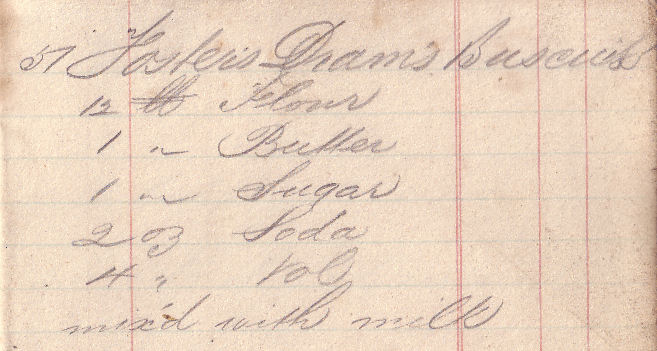 51 Foster's Drams Buscuits
12 lb Flour
1 " Butter
1 " Sugar
2 oz Soda
4 " Vol
mix'd with milk